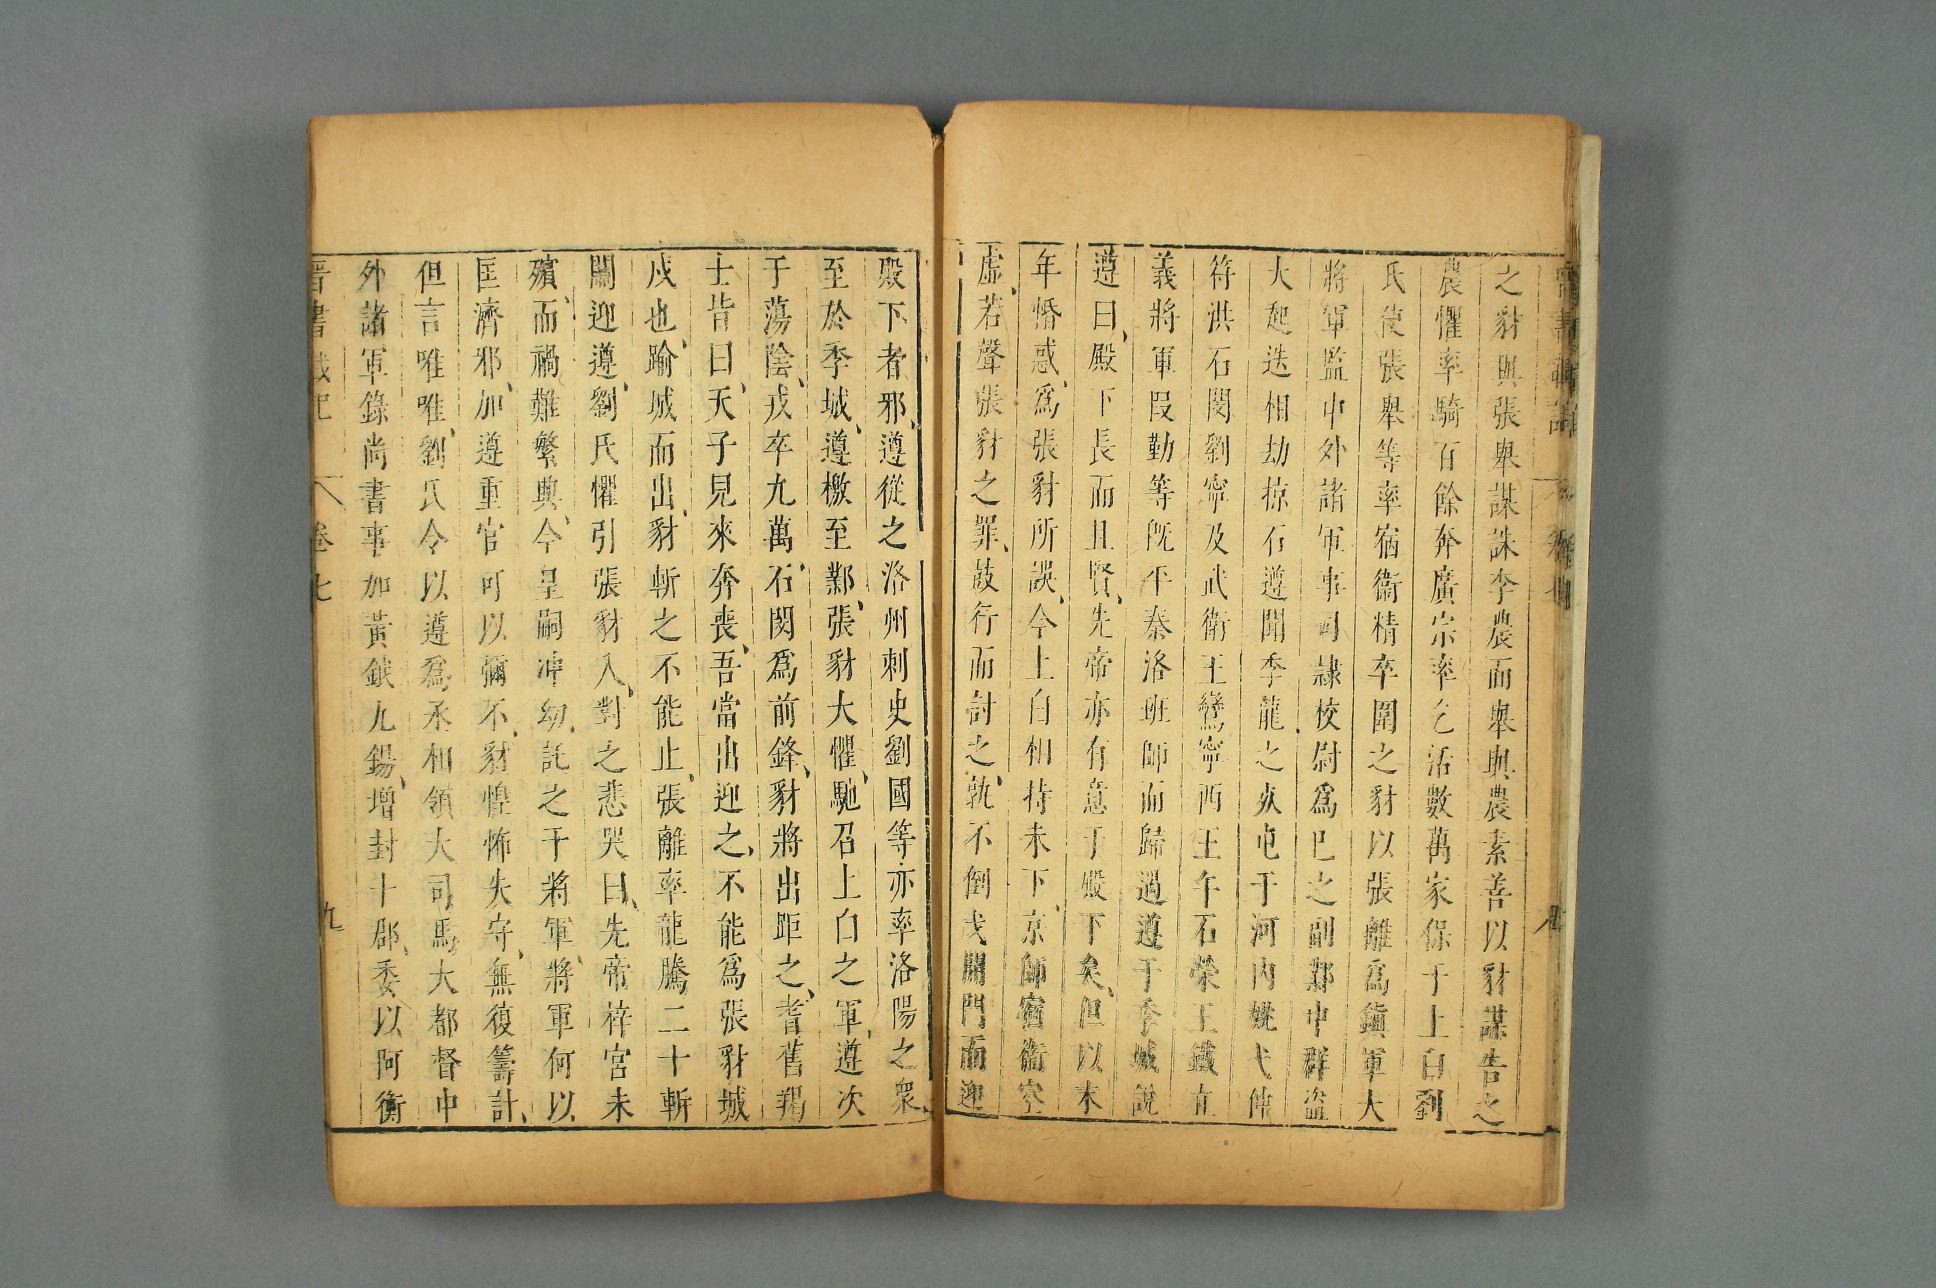 之豺與張舉謀誅李農而舉與農素善以豺謀告之
農懼率騎百餘奔廣宗率乞活數萬家保于上白劉
氏使張舉等率宿衞精卒圍之豺以張離爲鎭軍大
將軍監中外諸軍事司隷校尉爲巳之副鄴中群盜
大起迭相劫掠石遵聞季龍之死屯于河内姚弋仲
苻洪石閔劉寧及武衛王鸞寧西王午石榮王鐵立
義將軍段勤等旣平秦洛班師而歸遇遵于季城說
遵曰殿下長而且賢先帝亦有意于殿下矣但以末
年惛惑爲張豺所誤今上白相持未下京師宿衞空
虛若聲張豺之罪鼓行而討之孰不倒戈開門而迎
殿下者邪遵從之洛州刺史劉國等亦率洛陽之衆
至於季城遵檄至鄴張豺大懼馳召上白之軍遵次
于蕩陰戎卒九萬石閔爲前鋒豺將出距之耆舊羯
士皆曰天子兒來奔喪吾當出迎之不能爲張豺城
戍也踰城而出豺斬之不能止張離率龍騰二千斬
關迎遵劉氏懼引張豺入對之悲哭曰先帝梓宫未
殯而禍難繁興今皇嗣冲幼託之于將軍將軍何以
匡濟邪加遵重官可以彌不豺惶怖失守無復籌計
但言唯唯劉氏令以遵爲丞相領大司馬大都督中
外諸軍錄尚書事加黃鉞九錫增封十郡委以阿衡
晉書載記 卷七 九